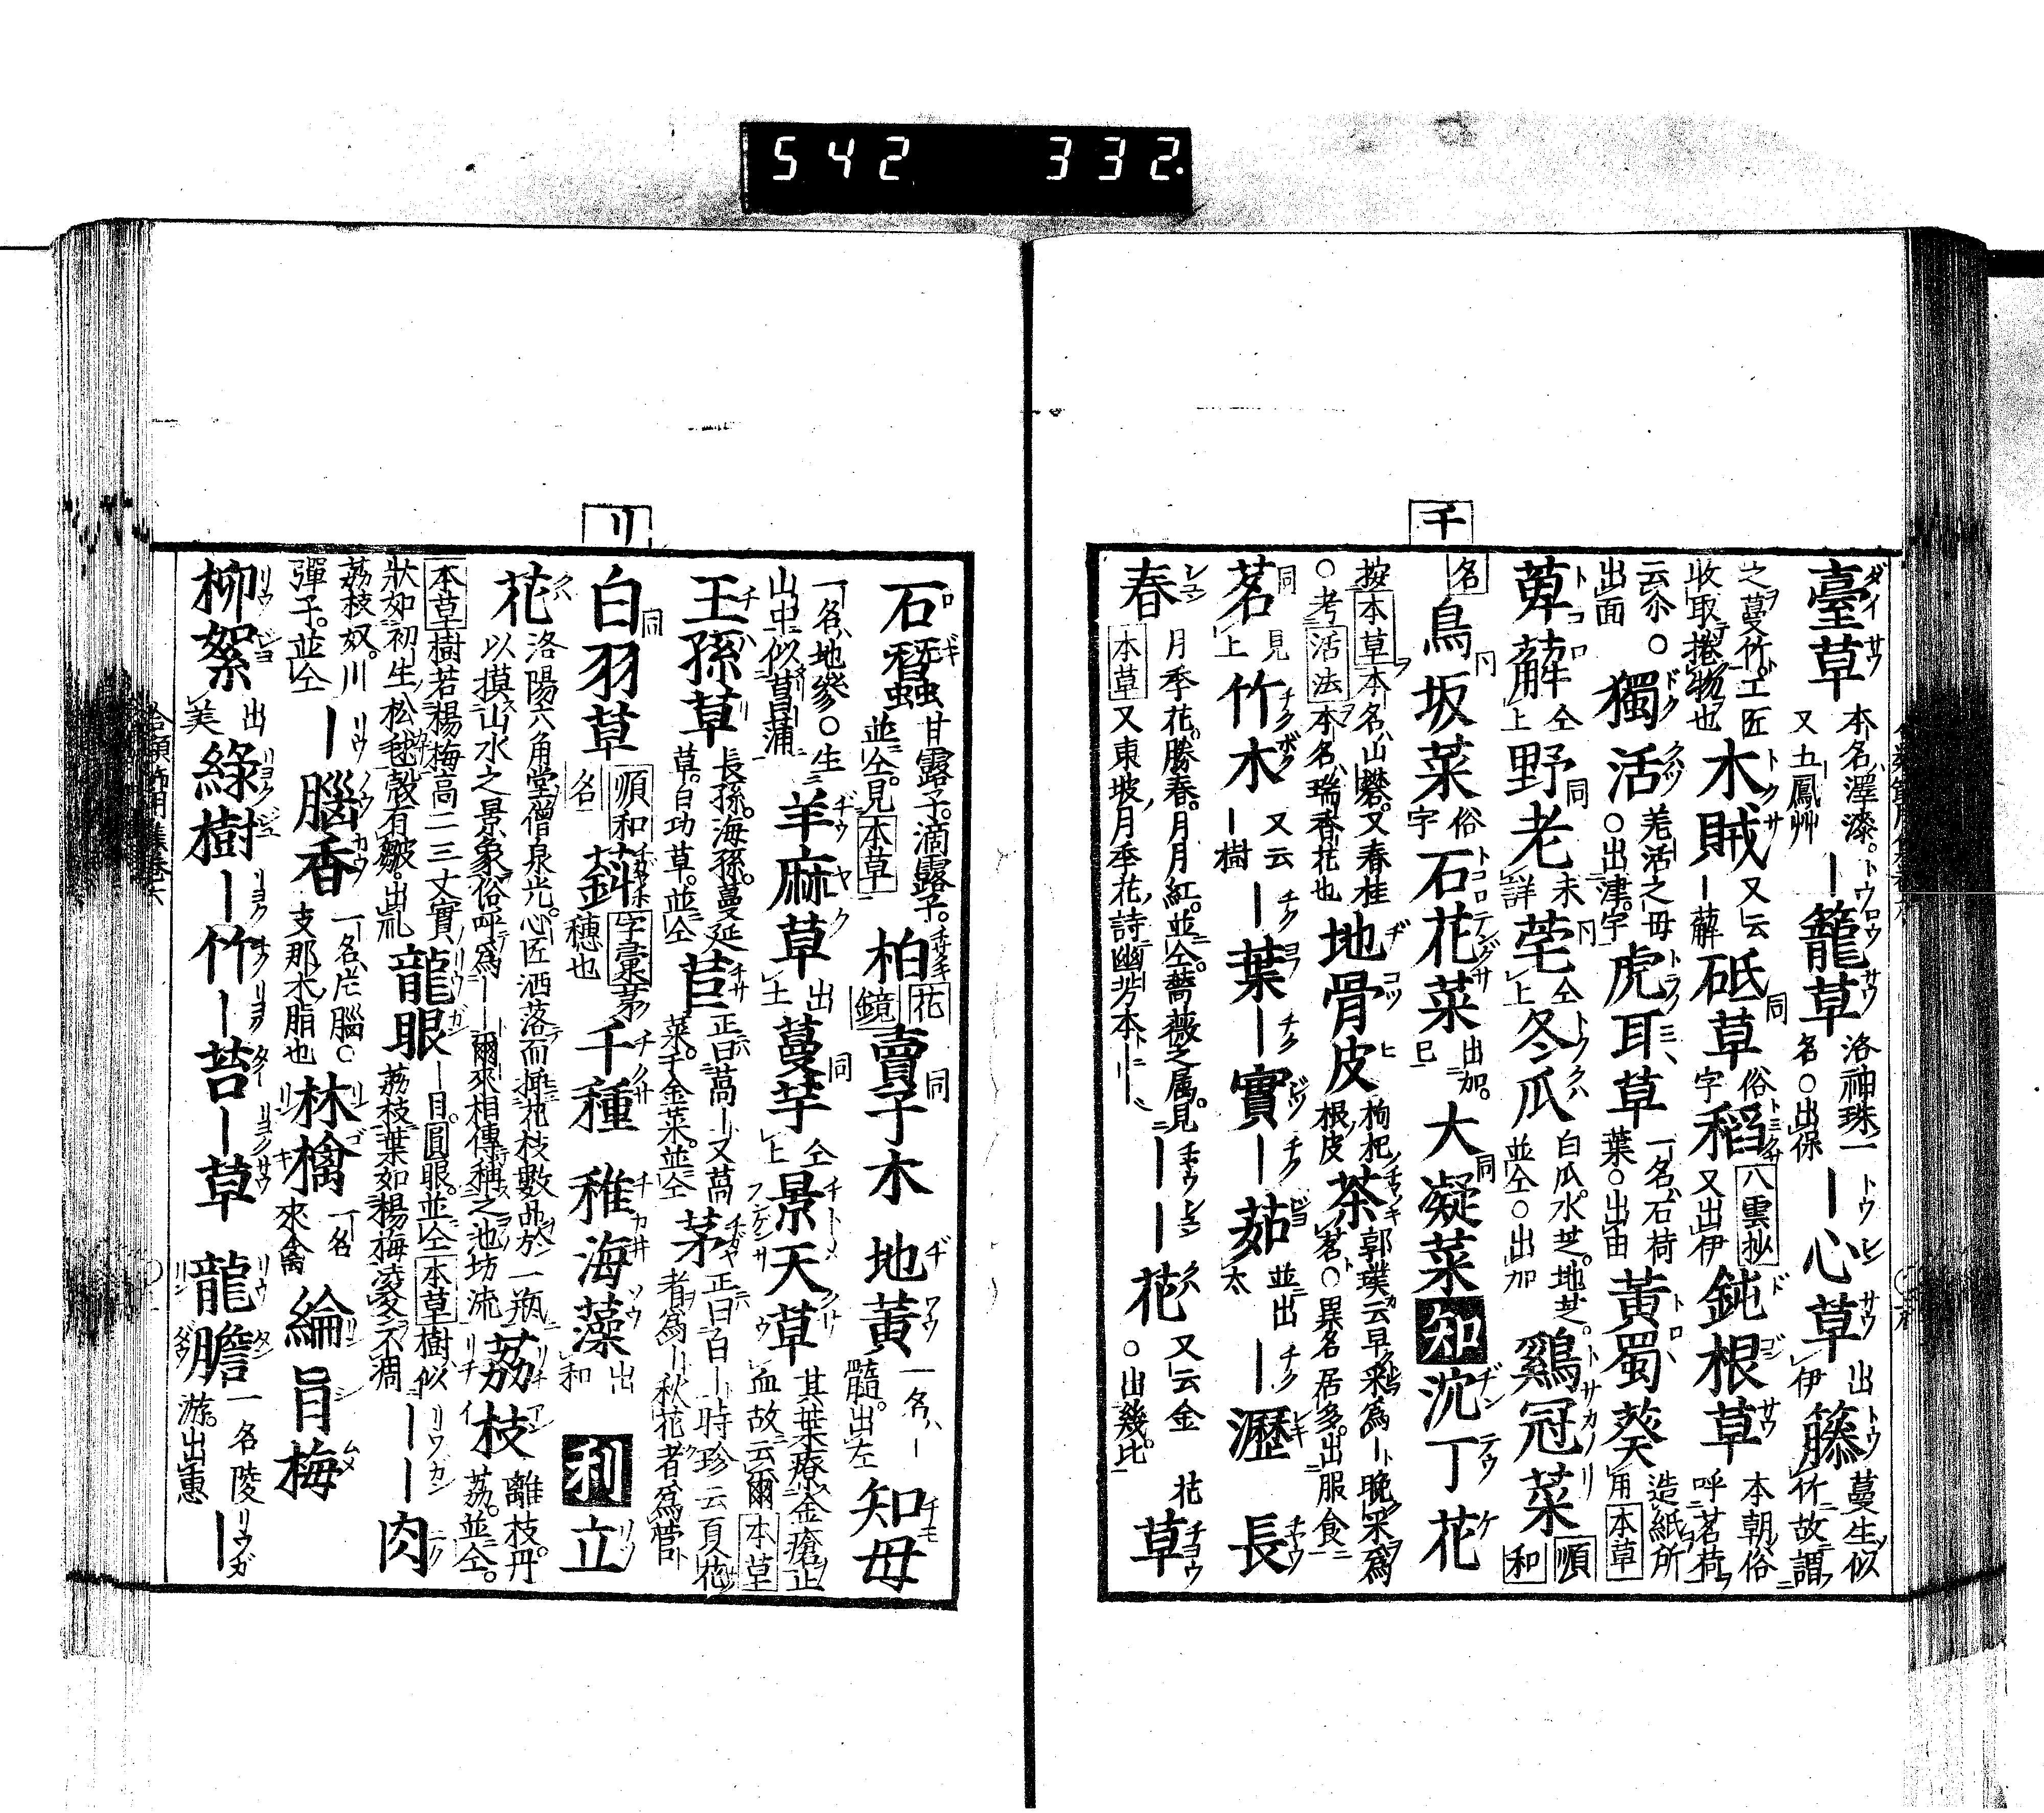 542 332.
チ
臺草 本名澤漆。又五鳳艸 ー籠草 洛神珠一名○出保 ー心草 出伊 籐 蔓生似竹故謂
之蔓竹。工匠收取捲物也 木賊 又云ー薢 砥草 俗字 稻 八雲抄 又出伊 鈍根草 本朝俗呼茗荷
云尒○出面 獨活 羌活之母○出津字 虎耳草 一名石荷葉○出由 黃蜀葵 造紙所用 本草
萆薢 仝上 野老 未詳 萢 仝上 冬瓜 白瓜。水芝。地芝。並仝○出加 鷄冠菜 順和
名 鳥坂菜 俗字 石花菜 出加。巳 大凝菜 知 沈丁花
按本草本名山礬。又春桂○考活法本名瑞香花也 地骨皮 枸杞根皮 茶 郭璞云早采爲ー晚采爲
茗○異名居多。出服食
茗 見上 竹木 又云ー樹 ー葉 ー實 ー茹 並出太 ー瀝 長
春 月季花。勝春。月月紅。並仝。薔薇之属。見本草又東坡月季花詩幽芳本ーー ーー花 又云金○出幾比。 花草
リ
石蠶 甘露子。滴露子。並仝。見本草 柏 花鏡 賣子木 地黃 一名ー髓。出左 知母
一名地參○生山中似菖蒲 羊麻草 出土 蔓芋 仝上 景天草 其葉療金瘡止血故云爾 本草
王孫草 長孫。海孫。蔓延草。白功草。並仝 苣 正曰萵ー又萵菜。千金菜。並仝 茅 正曰白ー時珍云夏花者爲ー秋花者爲菅
白羽草 順和名 㪷 字彙茅穗也 千種 稚海藻 出和 利 立
花 洛陽六角堂僧泉光。心匠洒落而挿花枝數品於一瓶以摸山水之景象俗呼爲ー爾來相傳稱之池坊流 荔枝 離枝。丹荔。並仝。
本草樹若楊梅高二三丈實狀如初生松毬殼有皺。出禮 龍眼 ー目。圓眼。並仝本草樹似荔枝葉如楊梅凌冬不凋 ーー肉
荔枝奴。川彈子。並仝 ー腦香 一名片腦○支那木脂也 林檎 一名來禽 綸旨梅
柳絮 出美 綠樹 ー竹 ー苔 ー草 龍膽 一名陵游。出惠 ー